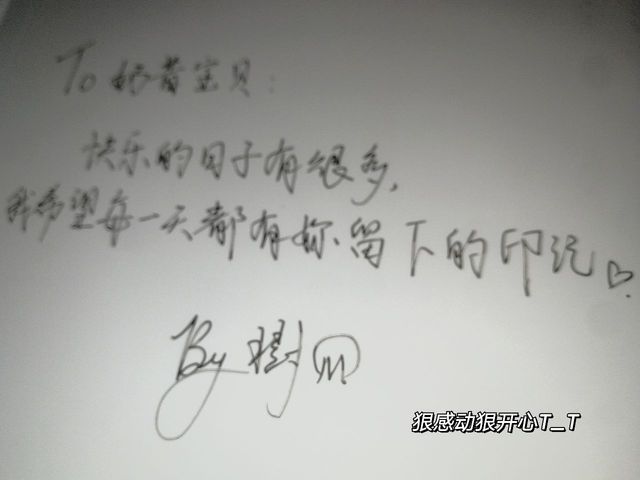 To 奶昔宝贝：
快乐的日子有很多，
我希望每一天都有妳留下的印记♡.
By 樹
狠感动狠开心T_T